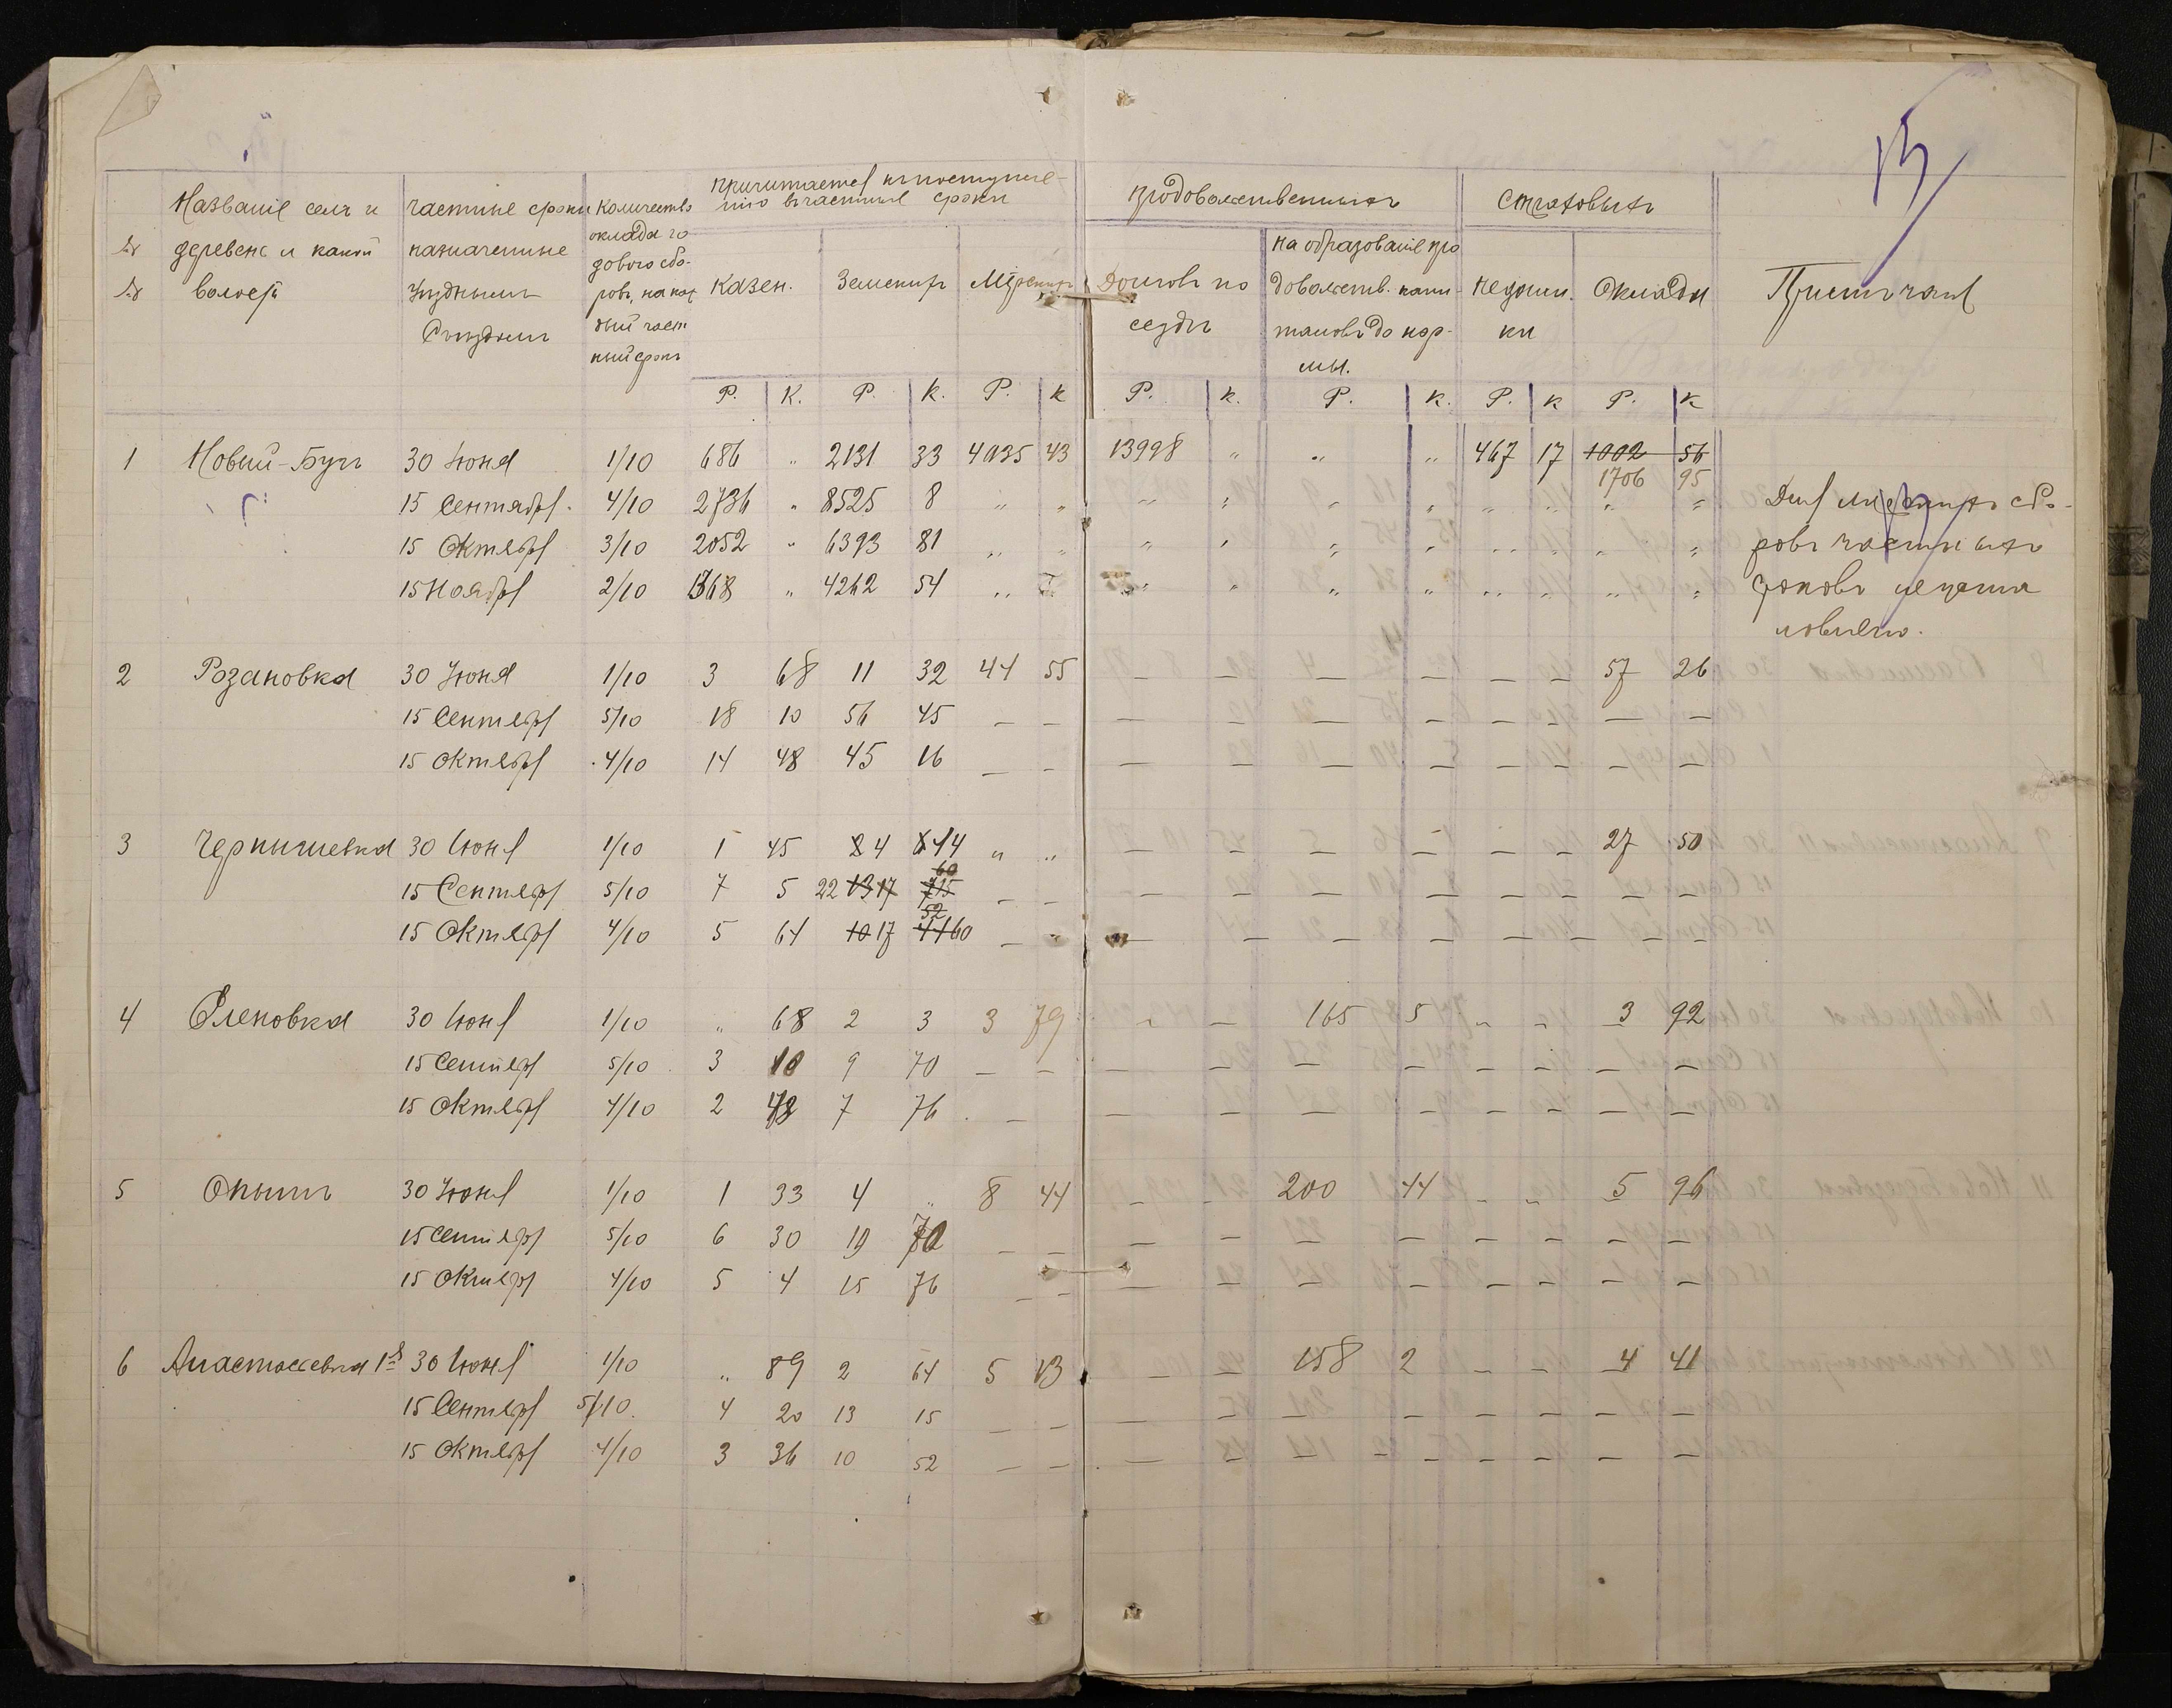 13
№ №
Названіе селъ и деревень и какой волости
Частные сроки назначенные Уѣзднымъ Съѣздомъ
Количество оклада годового сборовъ, на каждый частный срокъ
Причитается къ поступленію въ частные сроки
Казен. Земскихъ Мірскихъ
Продовольственныхъ
Долговъ по ссудѣ
на образованіе продовольств. капиталовъ до нормы.
Страховыхъ
Недоимки Оклады
Примѣчаніе
Р. К. Р. К. Р. К Р. К. Р. К. Р. К Р. К
1 Новый-Бугъ 30 Іюня 1/10 686 " 2131 33 4035 43 13998 " " " 467 17 1002 56
1706 95
15 Сентября 4/10 2736 " 8525 8 " " " " " " " " " "
15 Октября 3/10 2052 " 6393 81 " " " " " " " " " "
15 Ноября 2/10 1368 " 4262 54 " " " " " " " " "
Для мірскихъ сбо-
ровъ частныхъ
сроковъ
2 Розановка 30 Іюня 1/10 3 68 11 32 44 55 — — — — — — 57 26
15 Сентября 5/10 18 10 56 45 — — — — — — — — — —
15 Октября 4/10 14 48 45 16 — — — — — — — — — —
3 Чернышевка 30 Іюня 1/10 1 45 2 4 8 14 " " — — — — — — 27 50
60
15 Сентября 5/10 7 5 22 13 17 7 15 — — — — — — — — — —
52
15 Октября 4/10 5 64 10 17 41 60 — " — — — — — — — —
4 Еленовка 30 Іюня 1/10 " 68 2 3 3 79 — — 165 5 — — 3 92
15 Сентября 5/10 3 10 9 70 — — — — — — — — — —
15 Октября 4/10 2 48 7 76 — — — — — — — — —
5 Опытъ 30 Іюня 1/10 1 33 4 " 8 44 — — 200 44 — — 5 96
15 Сентября 5/10 6 30 19 70 — — — — — — — — — —
15 Октября 4/10 5 4 15 76 — — — — — — — — — —
6 Анастасьевка 1я 30 Іюня 1/10 " 89 2 64 5 13 — — 158 2 — — 4 41
15 Сентября 5/10 4 20 13 15 — — — — — — — — — —
15 Октября 4/10 3 36 10 52 — — — — — — — — — —